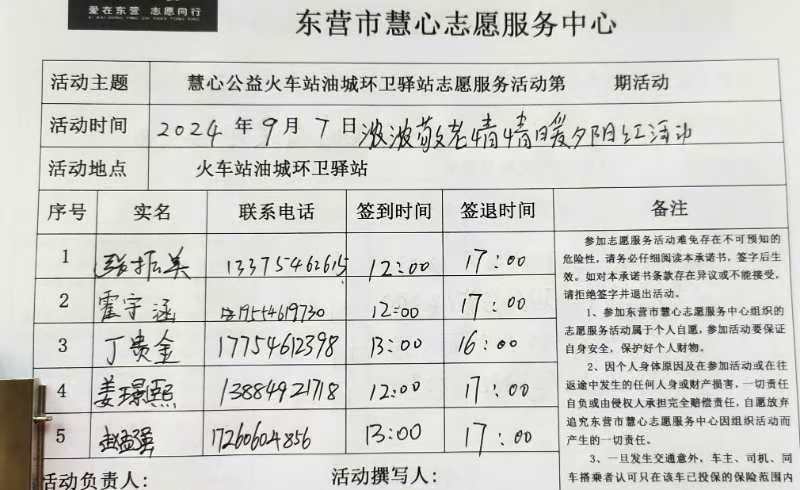 爱在东营 志愿同行
东营市慧心志愿服务中心
活动主题 慧心公益火车站油城环卫驿站志愿服务活动第 期活动
活动时间 2024年9月7日浓浓敬老情情暖夕阳红活动
活动地点 火车站油城环卫驿站
序号 实名 联系电话 签到时间 签退时间 备注
1 张振美 13375462615 12:00 17:00
2 霍守涵 19554619730 12:00 17:00
3 丁贵金 17754612398 13:00 16:00
4 姜璟熙 13884921718 12:00 17:00
5 赵孟强 17260604856 13:00 17:00
参加志愿服务活动难免存在不可预知的
危险性,请务必仔细阅读本承诺书,签字后生
效。如对本承诺书条款存在异议或不能接受,
请拒绝签字并退出活动。
1、参加东营市慧心志愿服务中心组织的
志愿服务活动属于个人自愿,参加活动要保证
自身安全,保护好个人财物。
2、因个人身体原因及在参加活动或在往
返途中发生的任何人身或财产损害,一切责任
自负或由侵权人承担完全赔偿责任,自愿放弃
追究东营市慧心志愿服务中心因组织活动而
产生的一切责任。
3、一旦发生交通意外,车主、司机、同
车搭乘者认可只在该车已投保的保险范围内
活动负责人: 活动撰写人: